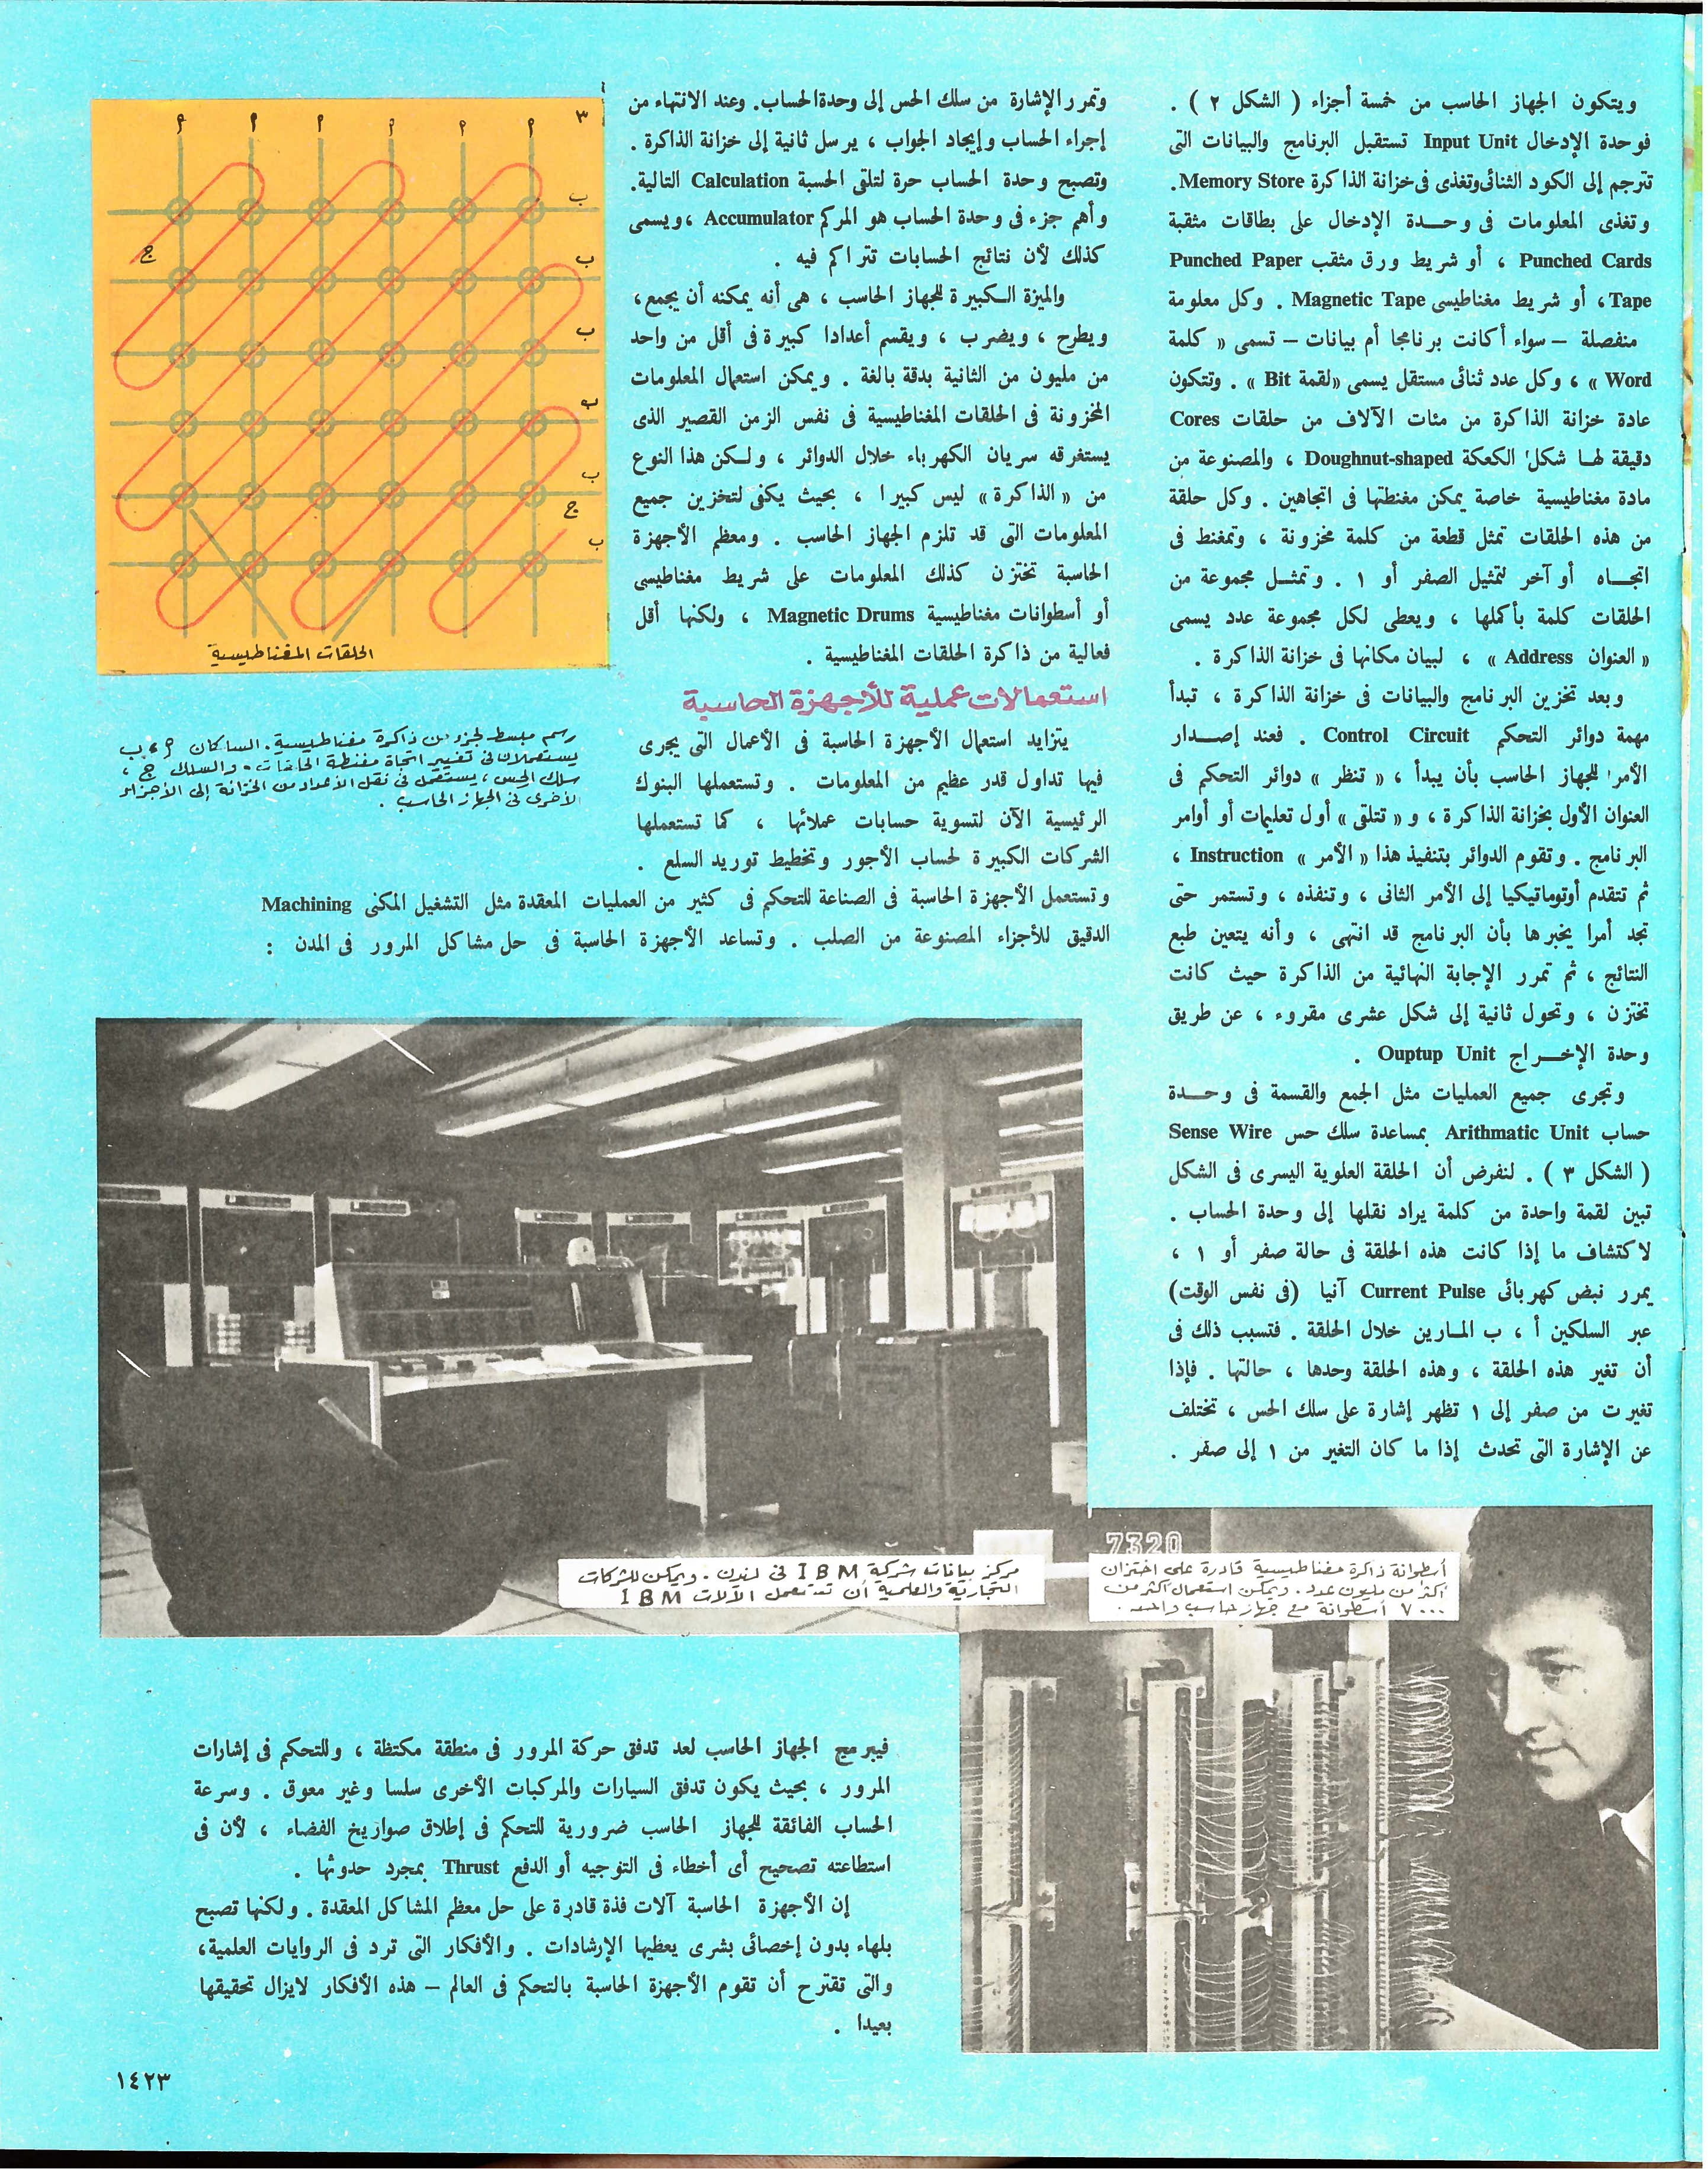 ويتكون الجهاز الحاسب من خمسة أجزاء ( الشكل ٢ ) .
فوحدة الإدخال Input Unit تستقبل البرنامج والبيانات التى
تترجم إلى الكود الثنائى وتغذى فى خزانة الذاكرة Memory Store.
وتغذى المعلومات فى وحـــدة الإدخال على بطاقات مثقبة
Punched Cards ، أو شريط ورق مثقب Punched Paper
Tape، أو شريط مغناطيسى Magnetic Tape . وكل معلومة
منفصلة – سواء أكانت برنامجا أم بيانات – تسمى « كلمة
Word » ، وكل عدد ثنائى مستقل يسمى «لقمة Bit » . وتتكون
عادة خزانة الذاكرة من مئات الآلاف من حلقات Cores
دقيقة لهــا شكل الكعكة Doughnut-shaped ، والمصنوعة من
مادة مغناطيسية خاصة يمكن مغنطتها فى اتجاهين . وكل حلقة
من هذه الحلقات تمثل قطعة من كلمة مخزونة ، وتمغنط فى
اتجـــاه أو آخر لتمثيل الصفر أو ١ . وتمثــل مجموعة من
الحلقات كلمة بأكملها ، ويعطى لكل مجموعة عدد يسمى
« العنوان Address » ، لبيان مكانها فى خزانة الذاكرة .
وبعد تخزين البرنامج والبيانات فى خزانة الذاكرة ، تبدأ
مهمة دوائر التحكم Control Circuit . فعند إصـــدار
الأمر للجهاز الحاسب بأن يبدأ ، « تنظر » دوائر التحكم فى
العنوان الأول بخزانة الذاكرة ، و « تتلقى » أول تعليمات أو أوامر
البرنامج . وتقوم الدوائر بتنفيذ هذا « الأمر » Instruction ،
ثم تتقدم أوتوماتيكيا إلى الأمر الثانى ، وتنفذه ، وتستمر حتى
تجد أمرا يخبرها بأن البرنامج قد انتهى ، وأنه يتعين طبع
النتائج ، ثم تمرر الإجابة النهائية من الذاكرة حيث كانت
تختزن ، وتحول ثانية إلى شكل عشرى مقروء ، عن طريق
وحدة الإخـــراج Ouptup Unit .
وتجرى جميع العمليات مثل الجمع والقسمة فى وحـــدة
حساب Arithmatic Unit بمساعدة سلك حس Sense Wire
( الشكل ٣ ) . لنفرض أن الحلقة العلوية اليسرى فى الشكل
تبين لقمة واحدة من كلمة يراد نقلها إلى وحدة الحساب .
لاكتشاف ما إذا كانت هذه الحلقة فى حالة صفر أو ١ ،
يمرر نبض كهربائى Current Pulse آنيا (فى نفس الوقت)
عبر السلكين أ ، ب المــارين خلال الحلقة . فتسبب ذلك فى
أن تغير هذه الحلقة ، وهذه الحلقة وحدها ، حالتها . فإذا
تغيرت من صفر إلى ١ تظهر إشارة على سلك الحس ، تختلف
عن الإشارة التى تحدث إذا ما كان التغير من ١ إلى صفر .
وتمرر الإشارة من سلك الحس إلى وحدة الحساب. وعند الانتهاء من
إجراء الحساب وإيجاد الجواب ، يرسل ثانية إلى خزانة الذاكرة .
وتصبح وحدة الحساب حرة لتلقى الحسبة Calculation التالية.
وأهم جزء فى وحدة الحساب هو المركم Accumulator ، ويسمى
كذلك لأن نتائج الحسابات تتراكم فيه .
والميزة الـكبيرة للجهاز الحاسب ، هى أنه يمكنه أن يجمع،
ويطرح ، ويضرب ، ويقسم أعدادا كبيرة فى أقل من واحد
من مليون من الثانية بدقة بالغة . ويمكن استعمال المعلومات
المخزونة فى الحلقات المغناطيسية فى نفس الزمن القصير الذى
يستغرقه سريان الكهرباء خلال الدوائر ، ولـكن هذا النوع
من « الذاكرة » ليس كبيرا ، بحيث يكفى لتخزين جميع
المعلومات التى قد تلزم الجهاز الحاسب . ومعظم الأجهزة
الحاسبة تختزن كذلك المعلومات على شريط مغناطيسى
أو أسطوانات مغناطيسية Magnetic Drums ، ولكنها أقل
فعالية من ذاكرة الحلقات المغناطيسية .
استعمالات عملية للأجهزة الحاسبة
يتزايد استعمال الأجهزة الحاسبة فى الأعمال التى يجرى
فيها تداول قدر عظيم من المعلومات . وتستعملها البنوك
الرئيسية الآن لتسوية حسابات عملائها ، كما تستعملها
الشركات الكبيرة لحساب الأجور وتخطيط توريد السلع .
وتستعمل الأجهزة الحاسبة فى الصناعة للتحكم فى كثير من العمليات المعقدة مثل التشغيل المكنى Machining
الدقيق للأجزاء المصنوعة من الصلب . وتساعد الأجهزة الحاسبة فى حل مشاكل المرور فى المدن :
٣
أ أ أ أ أ أ
ب
ج
ب
ب
ب
ب
ج
ب
الحلقات المغناطيسية
رسم مبسط لجزء من ذاكرة مغناطيسية. السلكان أ ، ب
يستعملان فى تغيير اتجاه مغنطة الحلقات. والسلك ج ،
سلك الحس ، يستعمل فى نقل الأعداد من الخزانة إلى الأجزاء
الأخرى فى الجهاز الحاسب .
مركز بيانات شركة IBM فى لندن . ويمكن للشركات
التجارية والعلمية أن تستعمل الآلات IBM
7320
أسطوانة ذاكرة مغناطيسية قادرة على اختزان
أكثر من مليون عدد . ويمكن استعمال أكثر من
٧٠٠٠ أسطوانة مع جهاز حاسب واحد .
فيبرمج الجهاز الحاسب لعد تدفق حركة المرور فى منطقة مكتظة ، وللتحكم فى إشارات
المرور ، بحيث يكون تدفق السيارات والمركبات الأخرى سلسا وغير معوق . وسرعة
الحساب الفائقة للجهاز الحاسب ضرورية للتحكم فى إطلاق صواريخ الفضاء ، لأن فى
استطاعته تصحيح أى أخطاء فى التوجيه أو الدفع Thrust بمجرد حدوثها .
إن الأجهزة الحاسبة آلات فذة قادرة على حل معظم المشاكل المعقدة . ولكنها تصبح
بلهاء بدون إخصائى بشرى يعطيها الإرشادات . والأفكار التى ترد فى الروايات العلمية،
والتى تقترح أن تقوم الأجهزة الحاسبة بالتحكم فى العالم – هذه الأفكار لايزال تحقيقها
بعيدا .
١٤٢٣